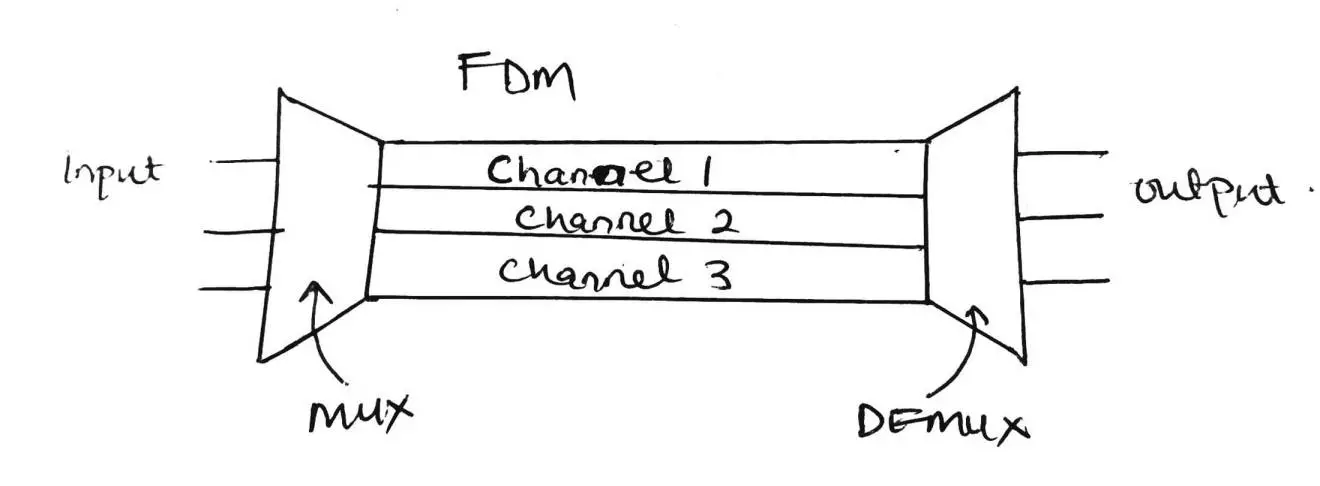 FDM
Input
Channel 1
Channel 2
Channel 3
output.
MUX
DEMUX